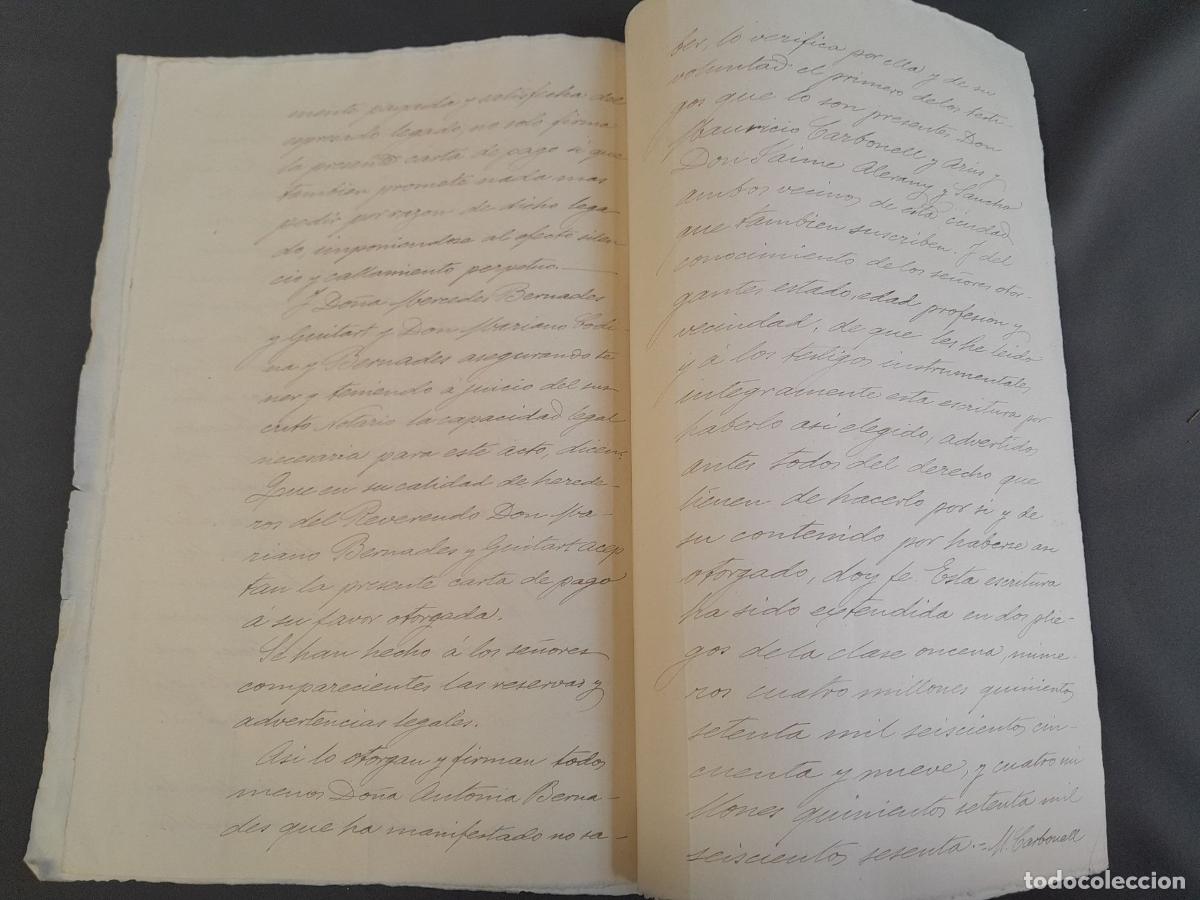 mente pagada y satisfecha del
expresado legado, no solo firma
la presente carta de pago si que
tambien promete nada mas
pedir por razon de dicho lega-
do, imponiendose al efecto silen-
cio y callamiento perpetuo.
Y Doña Mercedes Bernades
y Guitart y Don Mariano Codi-
na y Bernades asegurando te-
ner y teniendo á juicio del sus-
crito Notario la capacidad legal
necesaria para este acto, dicen:
Que en su calidad de herede-
ros del Reverendo Don Ma-
riano Bernades y Guitart acep-
tan la presente carta de pago
á su favor otorgada.
Se han hecho á los señores
comparecientes las reservas y
advertencias legales.
Asi lo otorgan y firman todos
menos Doña Antonia Berna-
des que ha manifestado no sa-
ber, lo verifica por ella y de su
voluntad el primero de los testi-
gos que lo son presentes Don
Mauricio Carbonell y Arus y
Don Jaime Alerany y Sancho
ambos vecinos de esta ciudad
que tambien suscriben. Y del
conocimiento de los señores otor-
gantes estado, edad profesion y
vecindad, de que les he leido
y á los testigos instrumentales
integramente esta escritura por
haberlo asi elegido, advertidos
antes todos del derecho que
tienen de hacerlo por si y de
su contenido por haberse asi
otorgado, doy fe. Esta escritura
ha sido extendida en dos plie-
gos de la clase oncena, núme-
ros cuatro millones quinientos
setenta mil seiscientos cin-
cuenta y nueve, y cuatro mi-
llones quinientos setenta mil
seiscientos sesenta.=M. Carbonell
todocoleccion